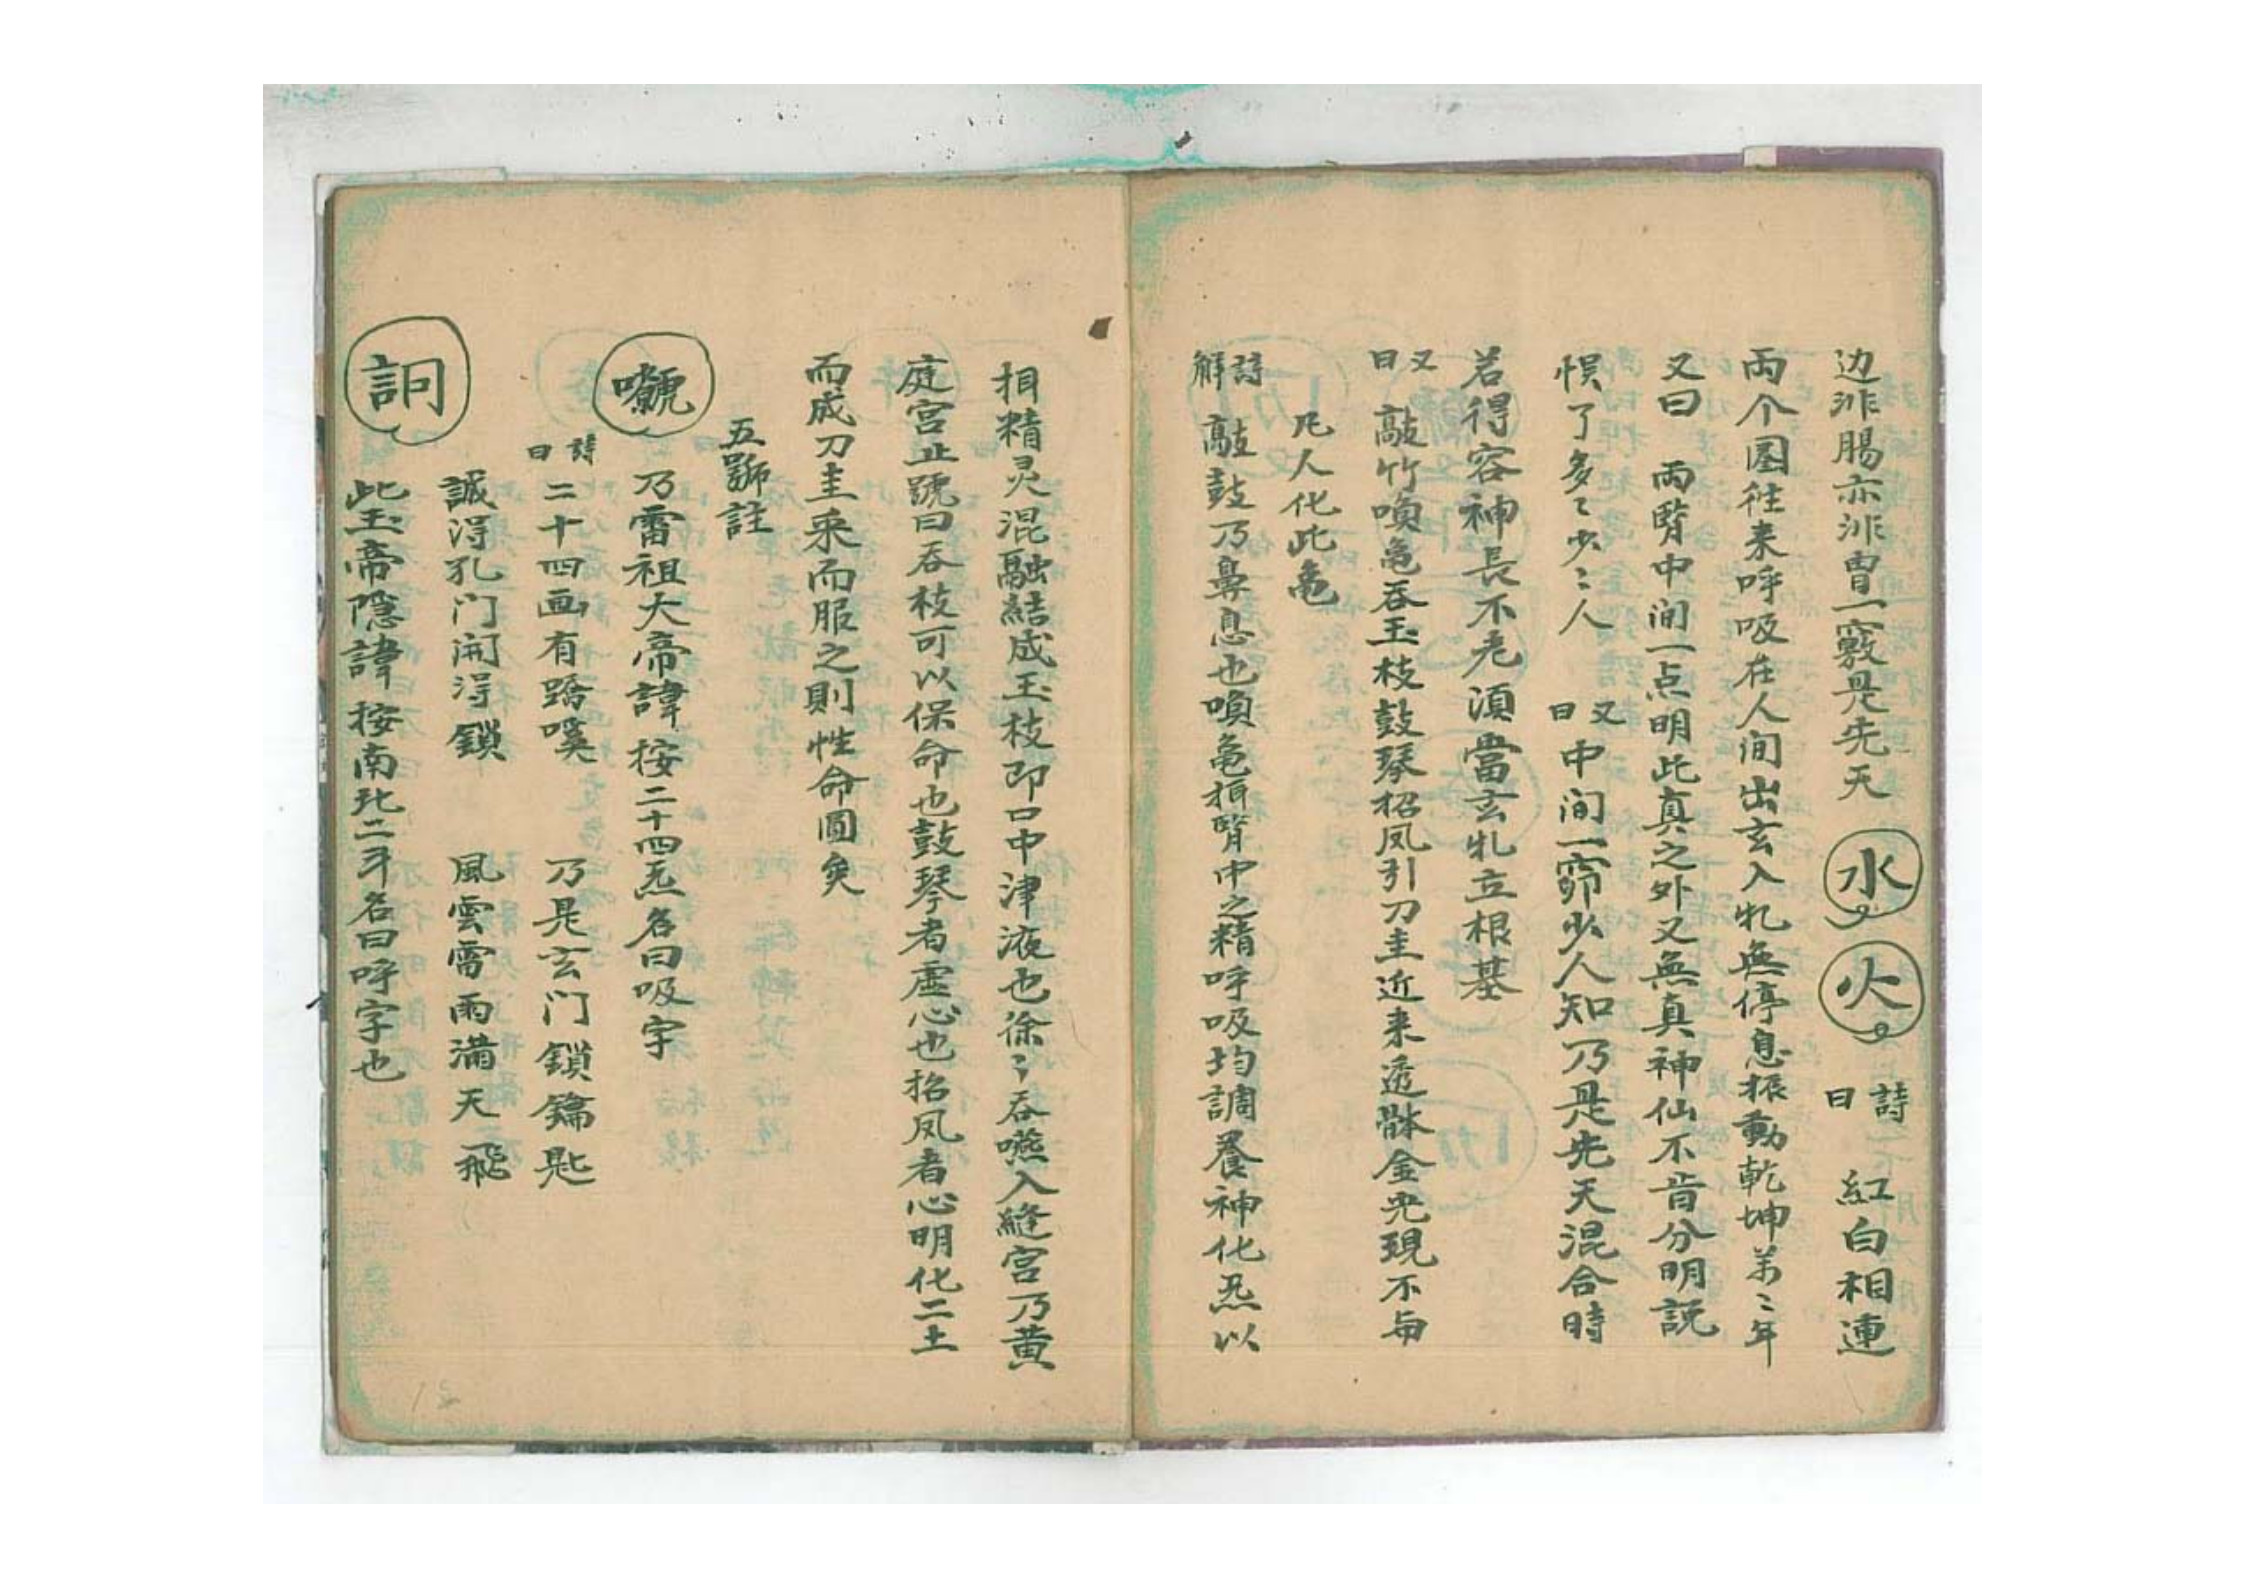 边非腸亦非胃一竅是先天 水 火 詩曰 紅白相連
兩个圈往来呼吸在人间出玄入牝無停息振動乾坤万〻年
又曰 兩腎中间一点明此真之外又無真神仙不肯分明説
悮了多〻少〻人 又曰 中间一窍少人知乃是先天混合時
若得容神長不老須當玄牝立根基
又曰 敲竹喚亀吞玉枝鼓琴招凤引刀圭近来透骵金光現不与
凡人化此亀
詩解 敲鼓乃鼻息也喚亀者腎中之精呼吸均調養神化炁以
相精灵混融結成玉枝即口中津液也徐〻吞嚥入絳宫乃黄
庭宫丘號曰吞枝可以保命也鼓琴者虚心也招凤者心明化二土
而成刀圭采而服之則性命圓矣
五號註
乃雷祖大帝諱按二十四炁名曰吸字
詩曰 二十四画有蹊嘆 乃是玄门鎖鑰匙
誠得孔门開得鎖 風雲雷雨满天飛
訶 此玉帝隱諱按南北二斗名曰呼字也